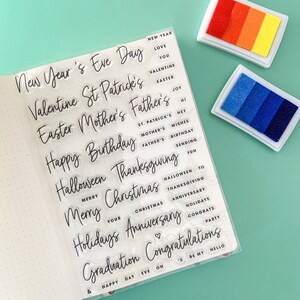 New Year's Eve Day
NEW YEAR
LOVE
YOU
Valentine St. Patrick's
VALENTINE
EASTER
JOY
Easter Mother's Father's
HI
ST. PATRICK'S HEY
MOTHER'S WISHES
Happy Birthday
FATHER'S BIRTHDAY
SENDING
FUN
Halloween Thanksgiving
HALLOWEEN TO
MERRY THANKSGIVING
Merry Christmas
ANNIVERSARY
YOUR CHRISTMAS HOLIDAYS
Holidays Anniversary
CONGRATS
PARTY
Graduation Congratulations
HAPPY DAY EVE ON BE MY HELLO